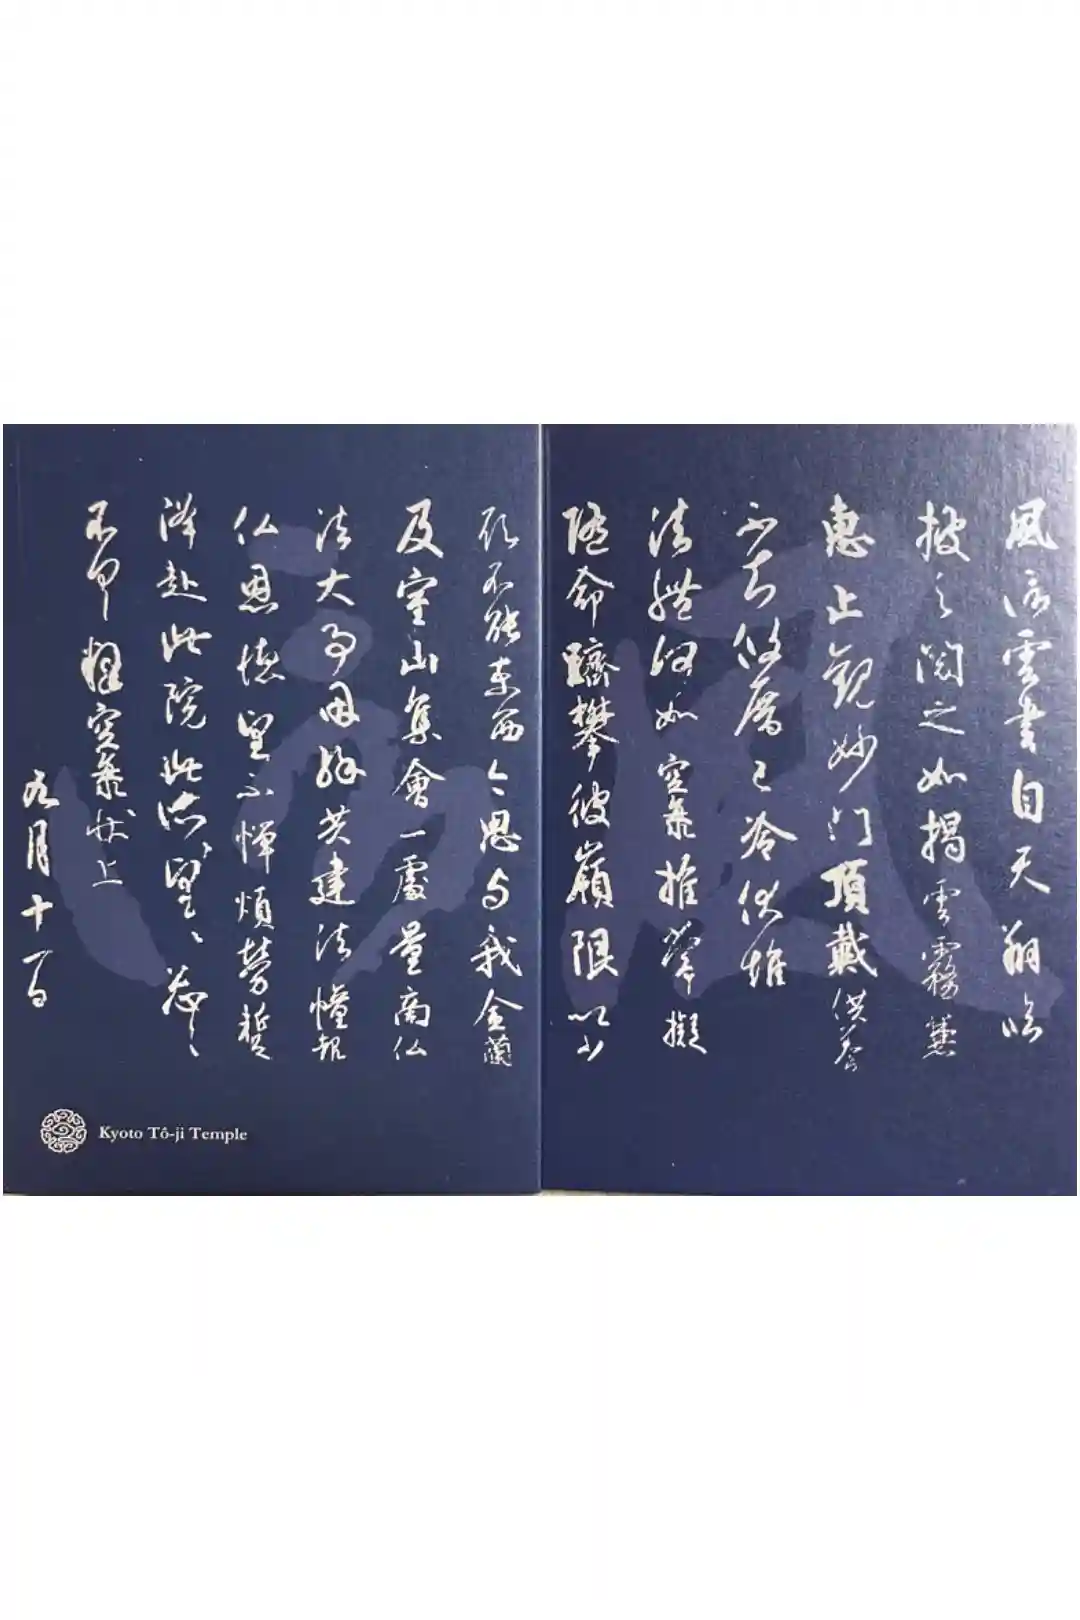 風信雲書自天翔臨
披之閲之如揭雲霧兼
恵止観妙門頂戴供養
不知攸厝已冷伏惟
法體何如空海推常擬
随命躋攀彼嶺限以少
願不能東西今思与我金蘭
及室山集會一處量商仏
法大事因縁共建法幢報
仏恩徳望不憚煩勞蹔
降赴此院此所望〻忩〻
不具釋空海状上
九月十一日
Kyoto Tô-ji Temple